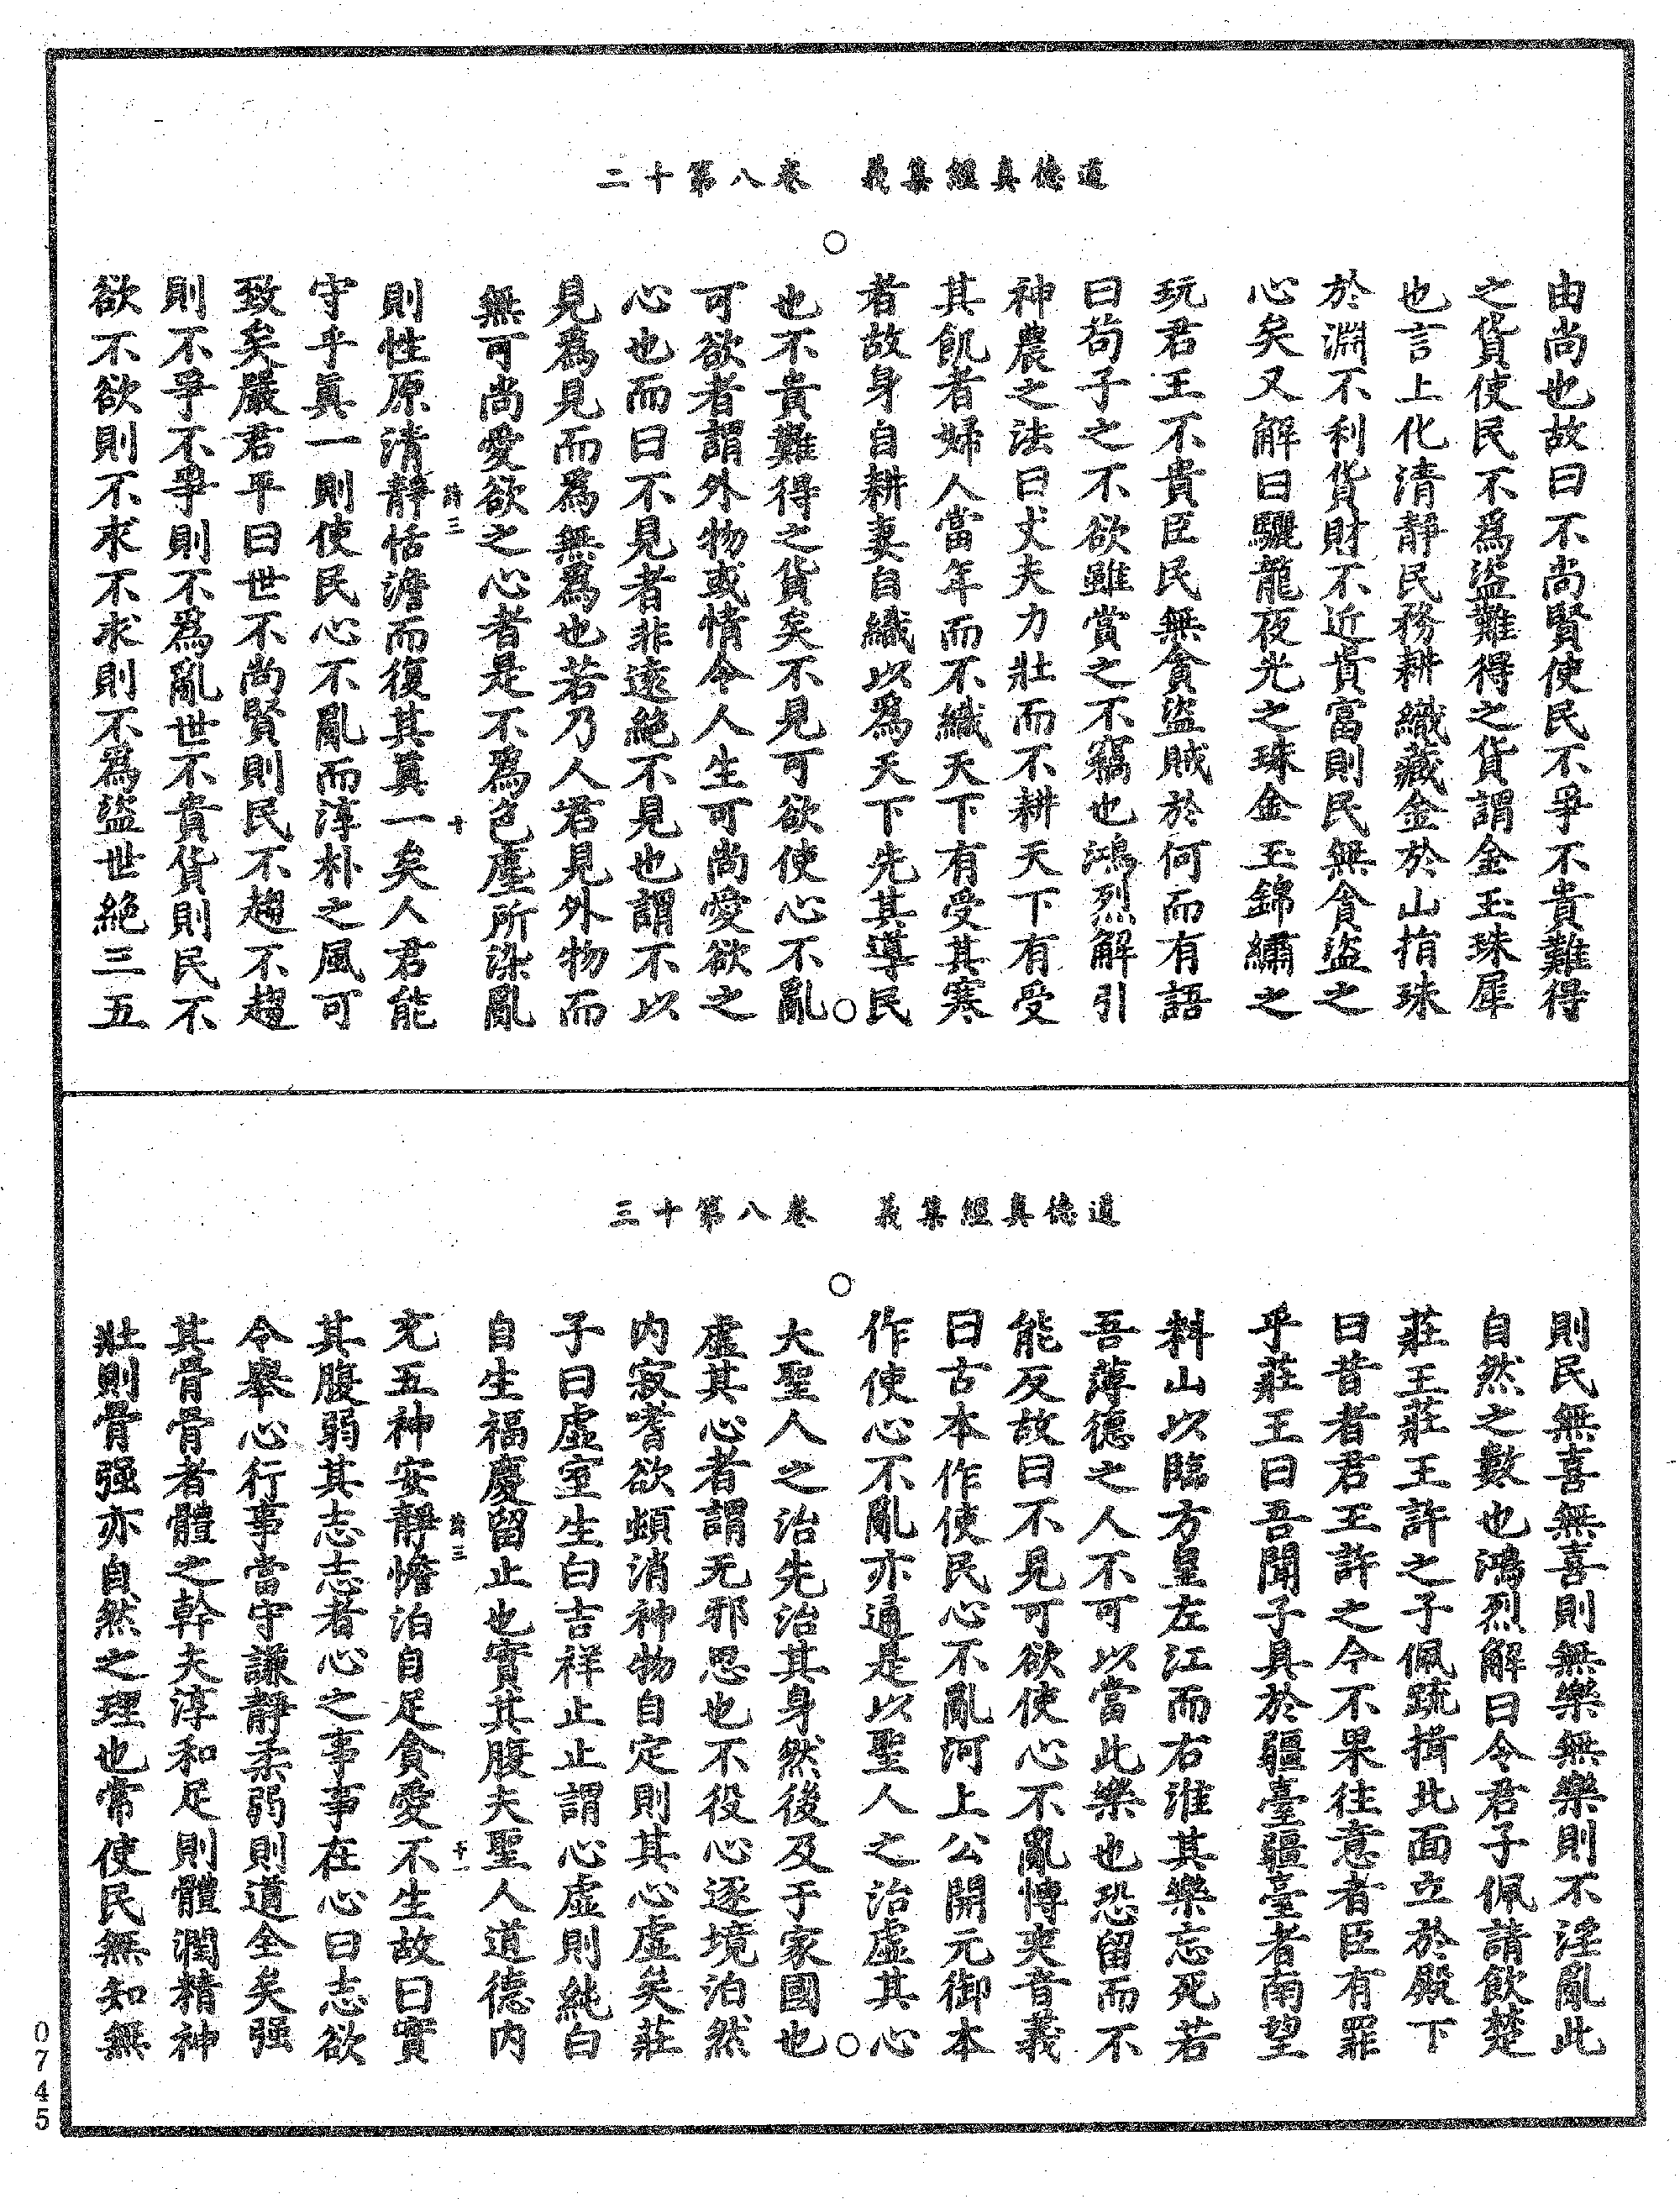 道德真經集義　卷八第十二
由尚也故曰不尚賢使民不爭不貴難得
之貨使民不為盜難得之貨謂金玉珠犀
也言上化清靜民務耕織藏金於山捐珠
於淵不利貨財不近貴富則民無貪盜之
心矣又解曰驪龍夜光之珠金玉錦繡之
玩君王不貴臣民無貪盜賊於何而有語
曰苟子之不欲雖賞之不竊也鴻烈解引
神農之法曰丈夫力壯而不耕天下有受
其飢者婦人當年而不織天下有受其寒
者故身自耕妻自織以為天下先其導民
也不貴難得之貨矣不見可欲使心不亂
可欲者謂外物或情令人生可尚愛欲之
心也而曰不見者非遠絕不見也謂不以
見為見而為無為也若乃人君見外物而
無可尚愛欲之心者是不為色塵所染亂
詩三　十
則性原清靜恬澹而復其真一矣人君能
守乎真一則使民心不亂而淳朴之風可
致矣嚴君平曰世不尚賢則民不趨不趨
則不爭不爭則不為亂世不貴貨則民不
欲不欲則不求不求則不為盜世絕三五
道德真經集義　卷八第十三
則民無喜無喜則無樂無樂則不淫亂此
自然之數也鴻烈解曰令君子佩請飲楚
莊王莊王許之子佩疏揖北面立於殿下
曰昔者君王許之今不果往意者臣有罪
乎莊王曰吾聞子具於疆臺疆臺者南望
料山以臨方皇左江而右淮其樂忘死若
吾薄德之人不可以當此樂也恐留而不
能反故曰不見可欲使心不亂博奕音義
曰古本作使民心不亂河上公開元御本
作使心不亂亦通是以聖人之治虛其心
大聖人之治先治其身然後及于家國也
虛其心者謂无邪思也不役心逐境泊然
內寂嗜欲頓消神物自定則其心虛矣莊
子曰虛室生白吉祥止止謂心虛則純白
自生福慶留止也實其腹夫聖人道德內
詩三　十一
充五神安靜憺泊自足貪愛不生故曰實
其腹弱其志志者心之事事在心曰志欲
令舉心行事當守謙靜柔弱則道全矣强
其骨骨者體之幹夫淳和足則體潤精神
壯則骨强亦自然之理也常使民無知無
0745